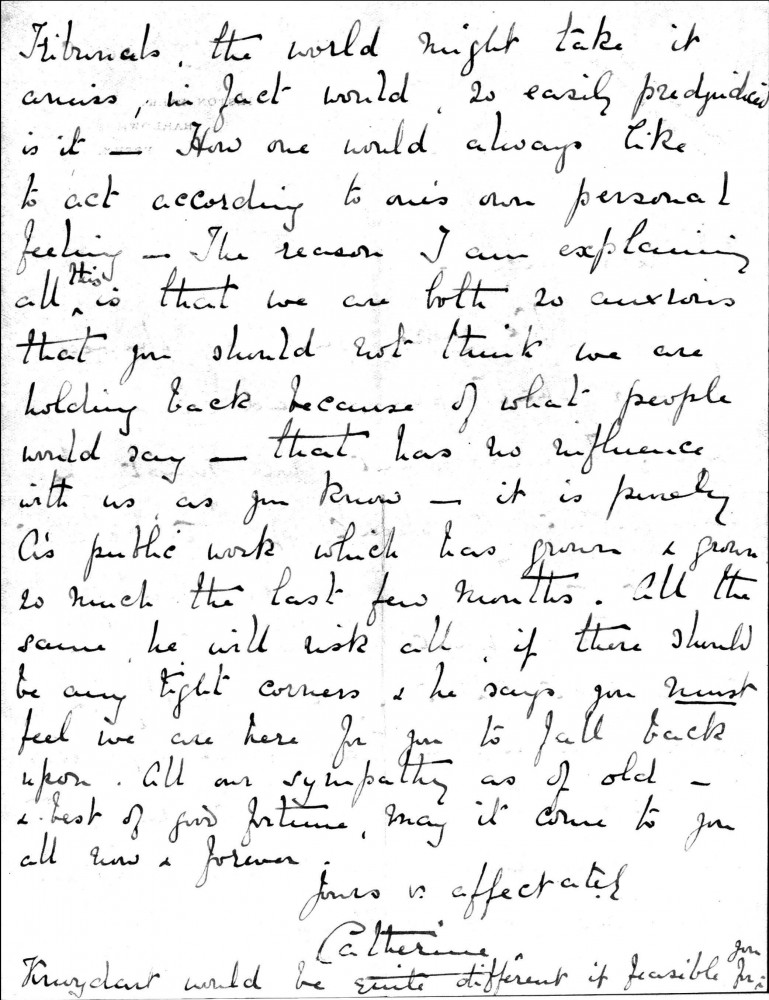 Tribunals, the world might take it
amiss, in fact would, so easily predjudiced
is it — How one would always like
to act according to one's own personal
feeling — The reason I am explaining
all this is that we are both so anxious
that you should not think we are
holding back because of what people
would say — that has no influence
with us as you know — it is purely
A's public work which has grown & grown
so much the last few months. All the
same, he will risk all, if there should
be any tight corners & he says you must
feel we are here for you to fall back
upon. All our sympathy as of old —
& best of good fortune, may it come to you
all now & forever.
Yours v. affectately
Catherine
Knoydart would be quite different if feasible for you